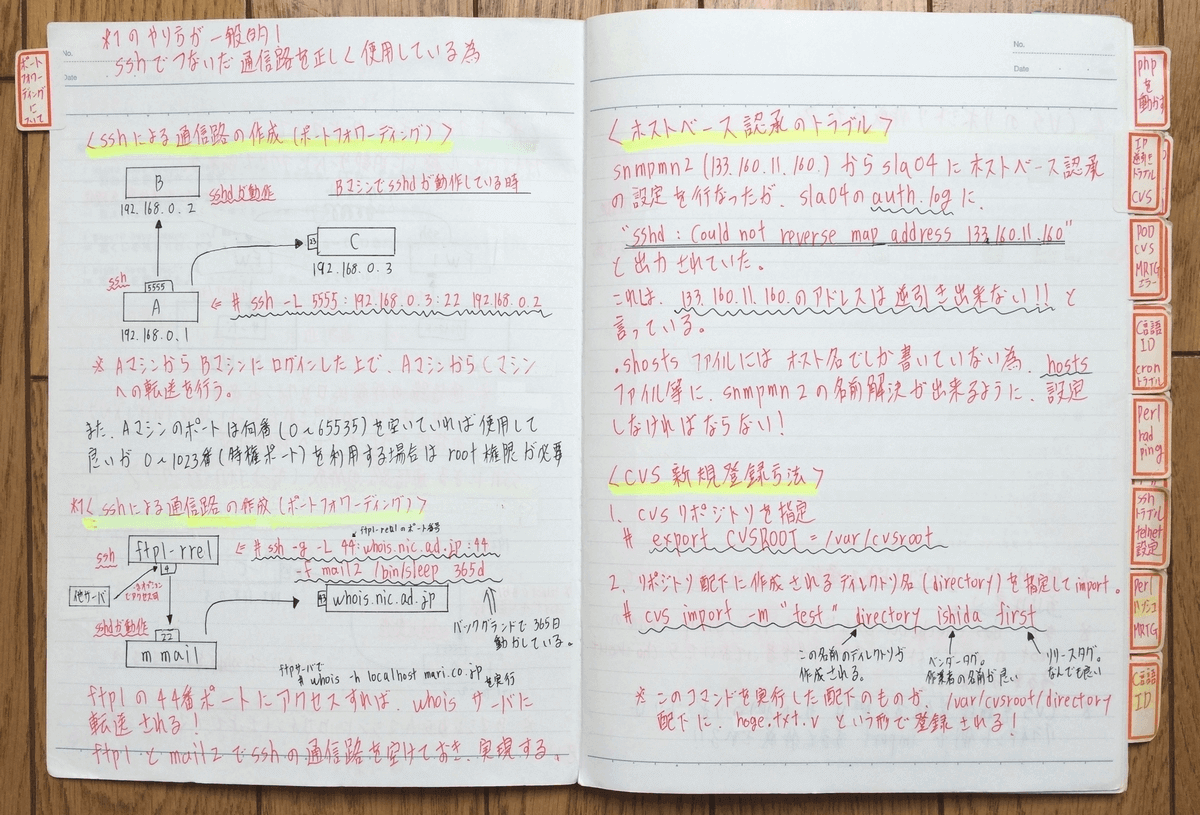 ポートフォワーディングについて
No.
Date
*1のやり方が一般的!
sshでつないだ通信路を正しく使用している為
<sshによる通信路の作成(ポートフォワーディング)>
B
sshdが動作
Bマシンでsshdが動作している時
192.168.0.2
23
C
192.168.0.3
ssh
5555
A
⇐ # ssh -L 5555:192.168.0.3:22 192.168.0.2
192.168.0.1
※ AマシンからBマシンにログインした上で、AマシンからCマシン
への転送を行う。
また、Aマシンのポートは何番(0~65535)を空いていれば使用して
良いが 0~1023番(特権ポート)を利用する場合は root権限が必要
*1<sshによる通信路の作成(ポートフォワーディング)>
ftp1-rre1のポート番号
ssh
ftp1-rre1
⇐ # ssh -g -L 44:whois.nic.ad.jp:44
-f mail2 /bin/sleep 365d
他サーバ
-gオプションで
アクセス可
43
whois.nic.ad.jp
sshdが動作
22
m mail
バックグランドで365日
動かしている。
ftpサーバで
# whois -h localhost mari.co.jp を実行
ftp1の44番ポートにアクセスすれば、whoisサーバに
転送される!
ftp1とmail2でsshの通信路を空けておき、実現する。
No.
Date
<ホストベース認承のトラブル>
snmpmn2 (133.160.11.160.)からsla04にホストベース認承
の設定を行なったが、sla04のauth.logに、
"sshd : Could not reverse map address 133.160.11.160"
と出力されていた。
これは、133.160.11.160.のアドレスは逆引き出来ない!!と
言っている。
.shostsファイルにはホスト名でしか書いていない為、hosts
ファイル等に、snmpmn2の名前解決が出来るように、設定
しなければならない!
<CVS新規登録方法>
1. cvsリポジトリを指定
# export CVSROOT=/var/cvsroot
2. リポジトリ配下に作成されるディレクトリ名(directory)を指定してimport。
# cvs import -m "test" directory ishida first
この名前のディレクトリが
作成される。
ベンダータグ。
作業者の名前が良い
リリースタグ。
なんでも良い
※このコマンドを実行した配下のものが、/var/cvsroot/directory
配下に、hoge.txt.v という形で登録される!
phpを動かす
IP
逆引き
トラブル
CVS
POD
CVS
MRTG
エラー
C言語
ID
cron
トラブル
perl
rad
ping
ssh
トラブル
telnet
設定
Perl
MRTG
C言語
ID